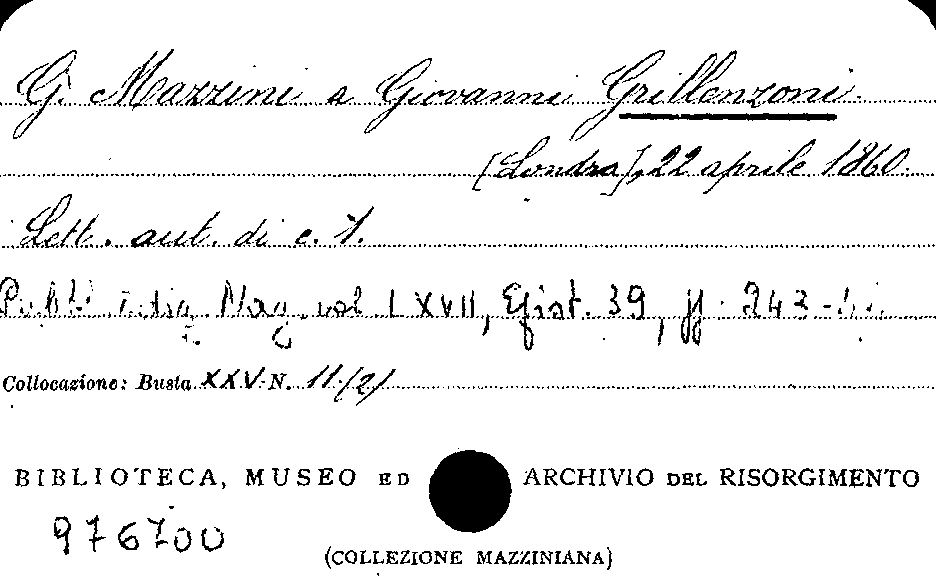 G. Mazzini a Giovanni Grillenzoni.
[Londra], 22 aprile 1860.
Lett. aut. di c. 1.
Naz. vol LXVII, Epist. 39, pp. 243-
Collocazione: Busta XXV N. 11/(2)
BIBLIOTECA, MUSEO ED ARCHIVIO DEL RISORGIMENTO
976700
(COLLEZIONE MAZZINIANA)